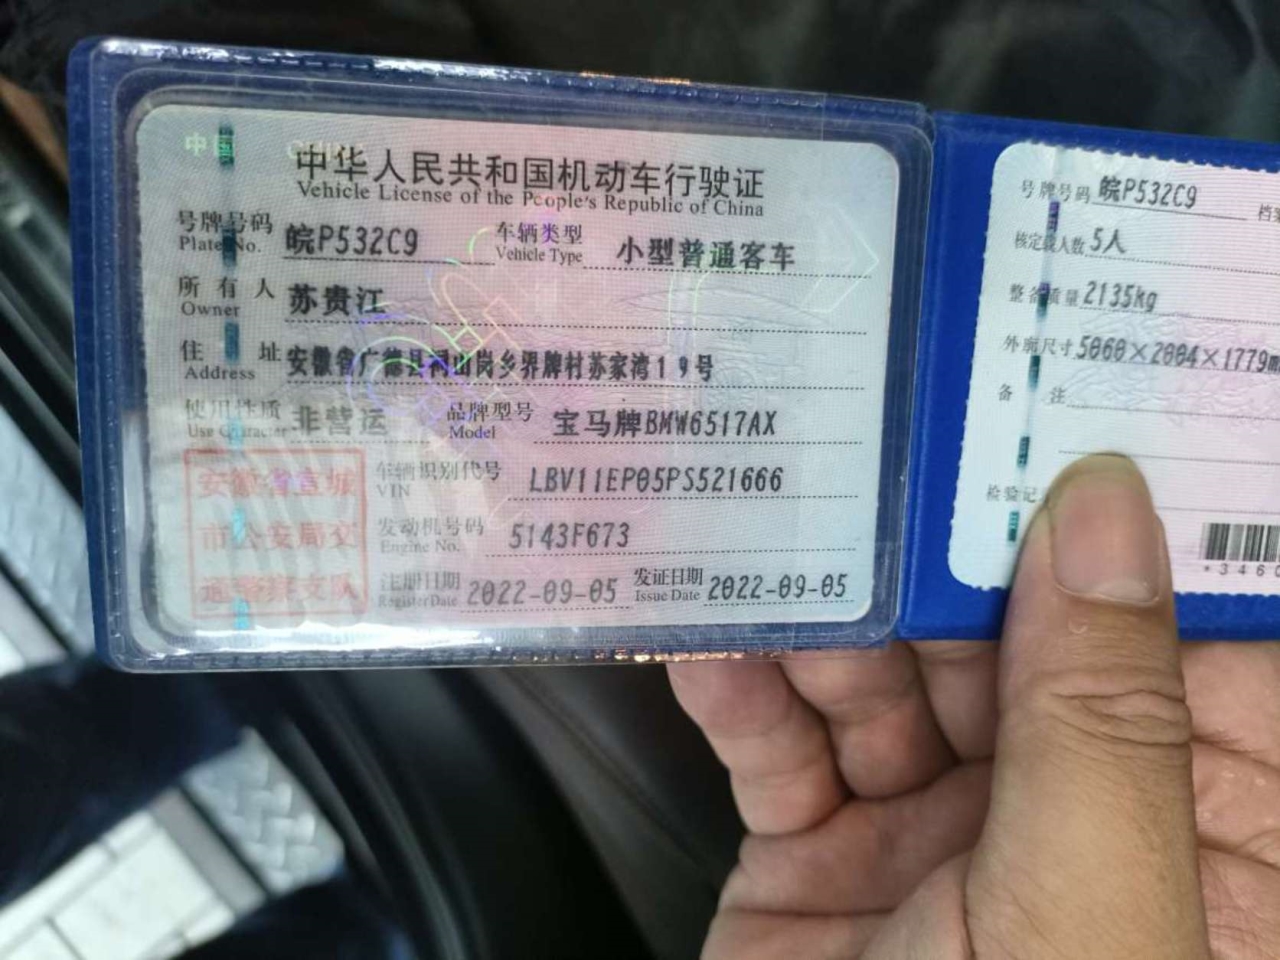 中国 CHINA
中华人民共和国机动车行驶证
Vehicle License of the People's Republic of China
号牌号码 皖P532C9 车辆类型 小型普通客车
Plate No. Vehicle Type
所有人 苏贵江
Owner
住址 安徽省广德县祠山岗乡界牌村苏家湾19号
Address
使用性质 非营运 品牌型号 宝马牌BMW6517AX
Use Character Model
车辆识别代号 LBV11EP05PS521666
VIN
发动机号码 5143F673
Engine No.
注册日期 2022-09-05 发证日期 2022-09-05
Register Date Issue Date
安徽省宣城
市公安局交
通警察支队
号牌号码 皖P532C9 档
核定载人数 5人
整备质量 2135kg
外廓尺寸 5060×2004×1779m
备注
检验记
*3460